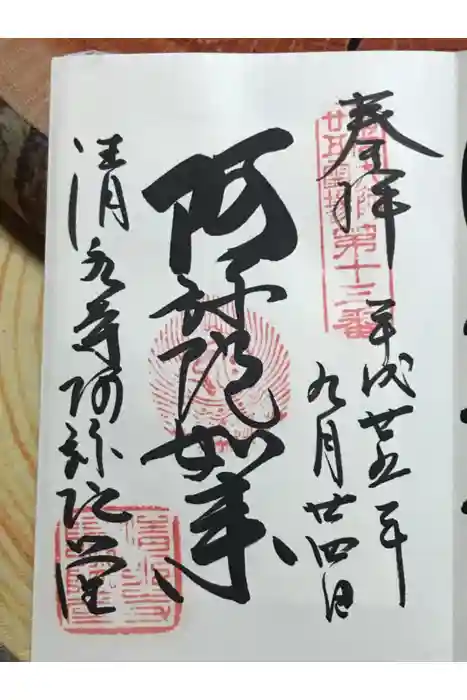 奉拝
平成廿五年
九月廿四日
廿五霊場
第十三番
阿弥陀如来
清水寺阿弥陀堂